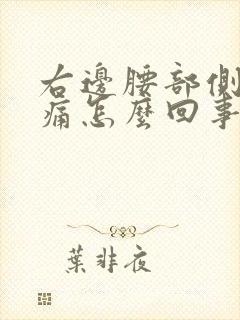 右邊腰部側
痛怎麼回事
葉非夜